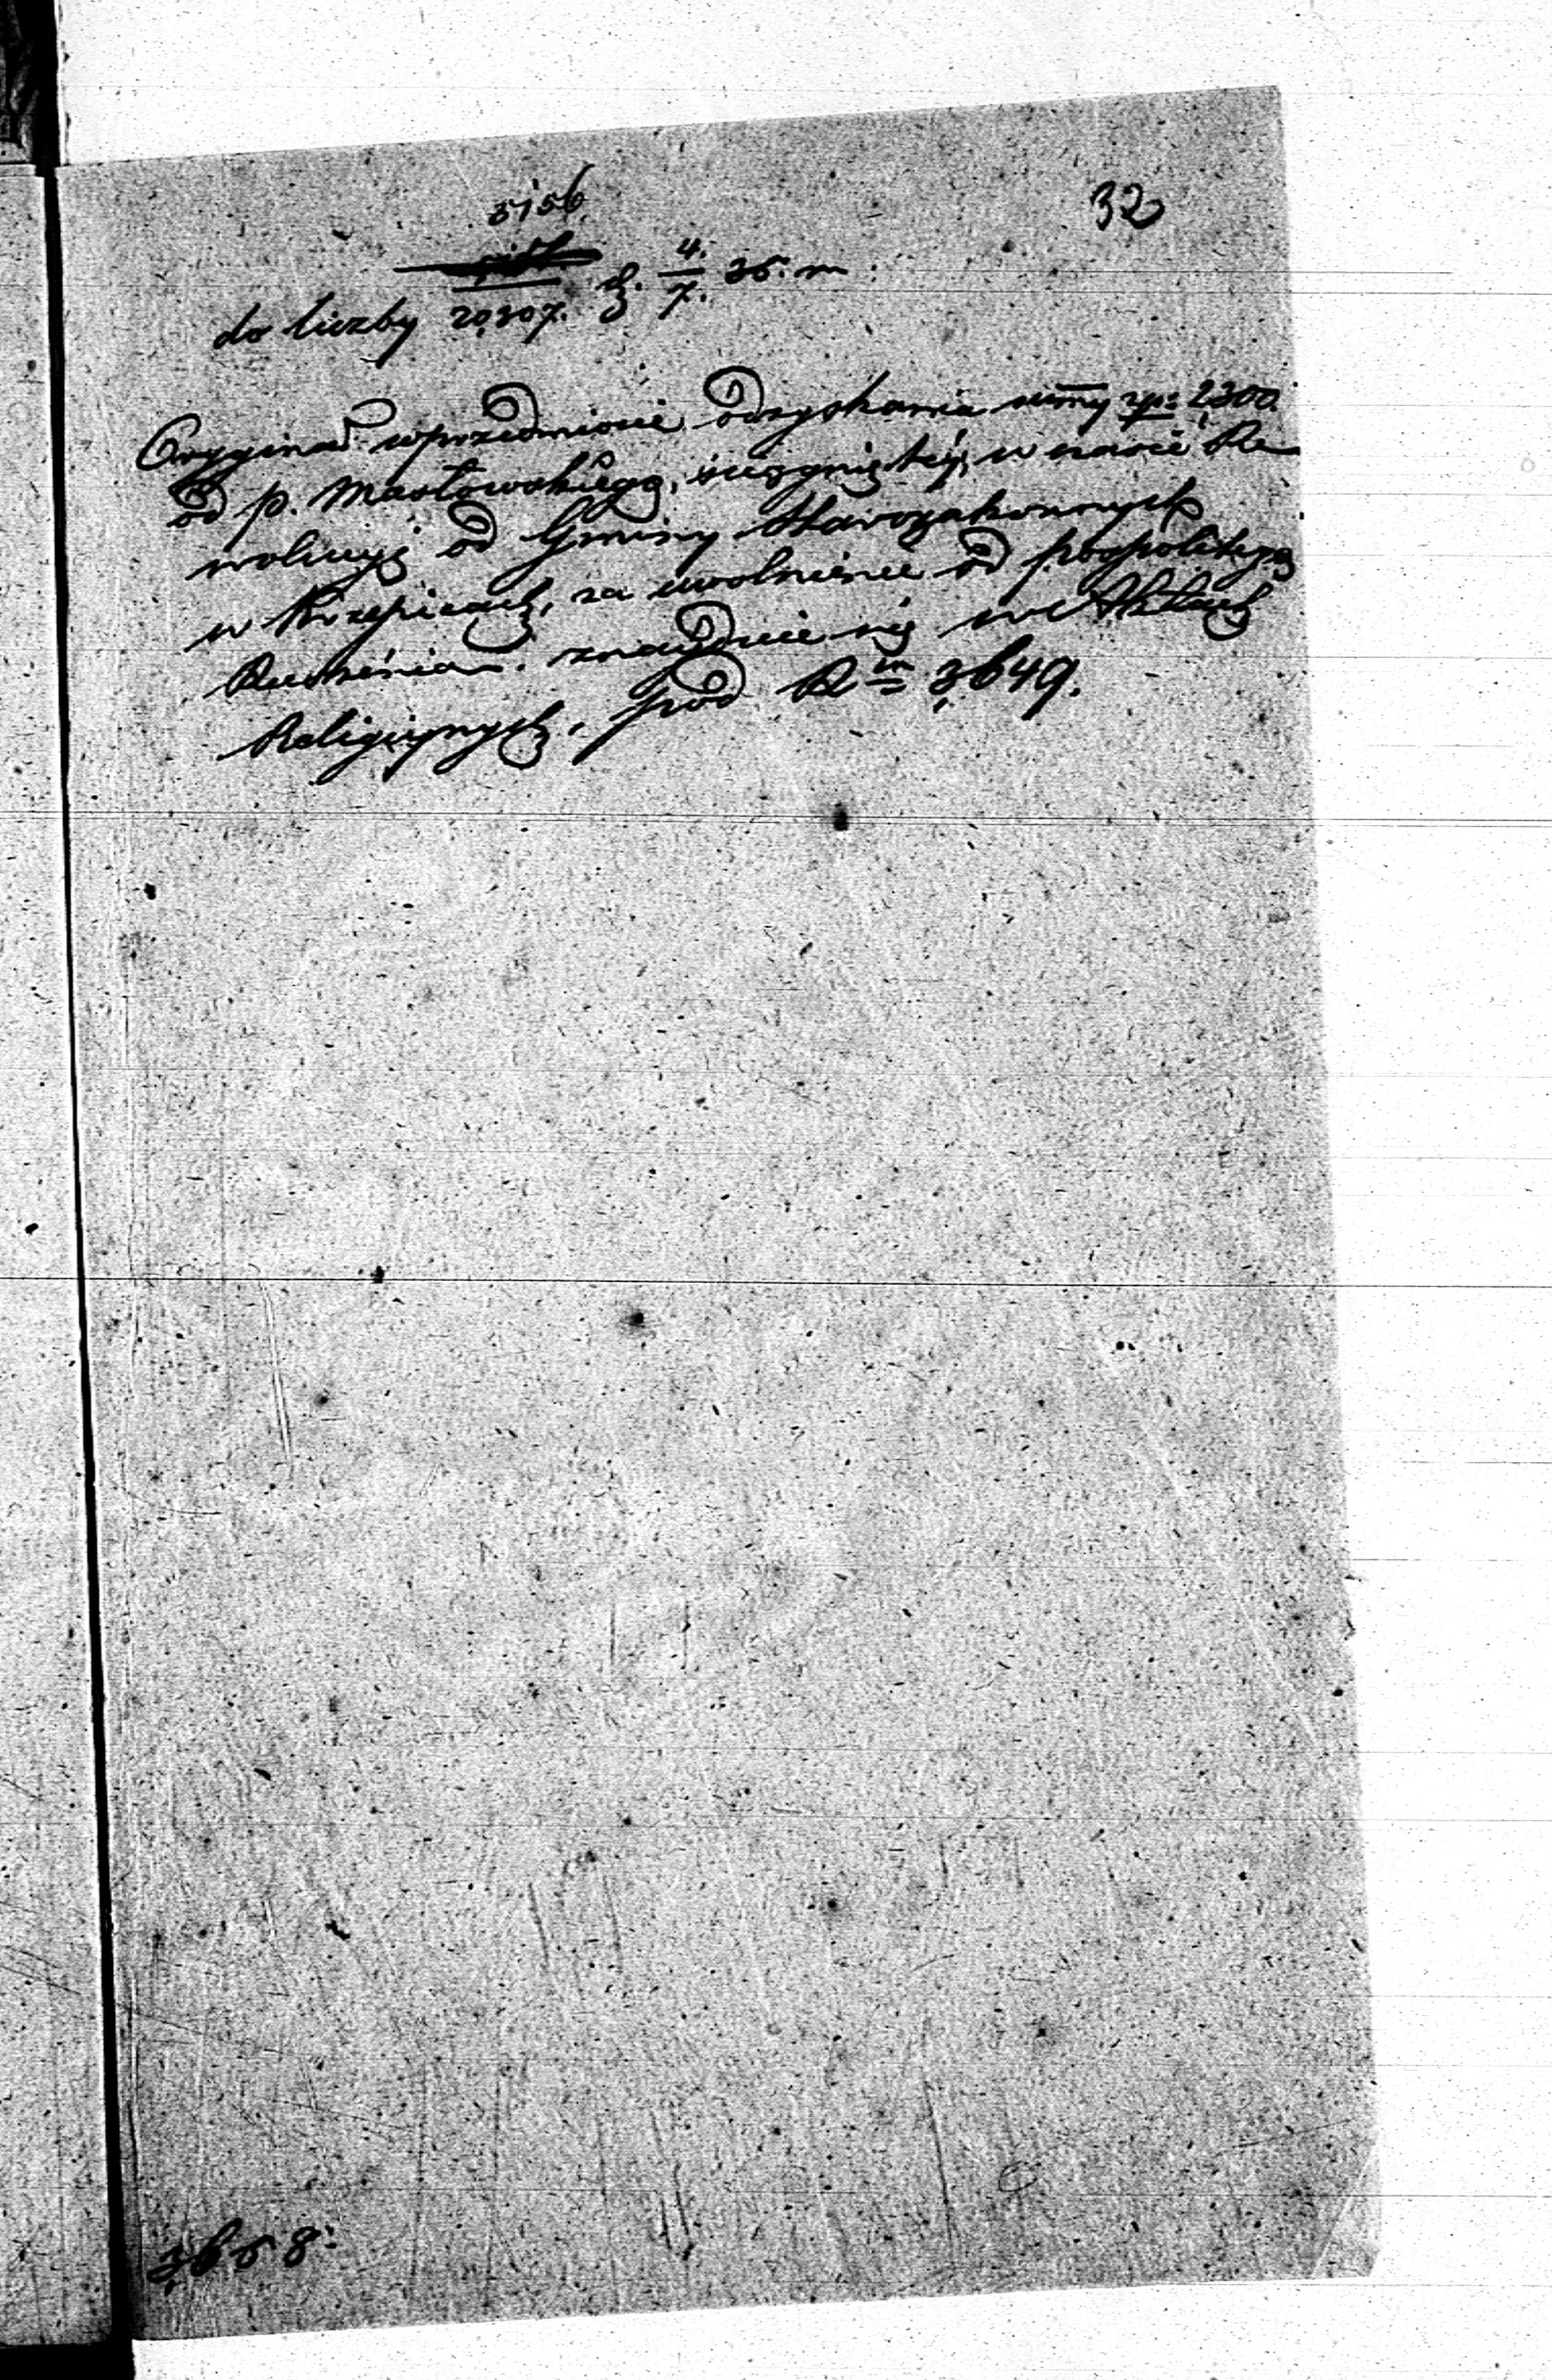 32
5156
do liczby 20,307. d. 4./7. 36. m
Oryginał wprzedmiocie odzyskania summy zp: 2,300.
od p. Masłowskiego, ściągniętéy, w czasie Re-
wolucyi od Gminy Starozakonnych
w Krzepicach, za uwolnienie od pospolitego
Ruszenia. znayduie się w Aktach
Religiynych, pod R<sup>m</sup> 3,649.
3,658.